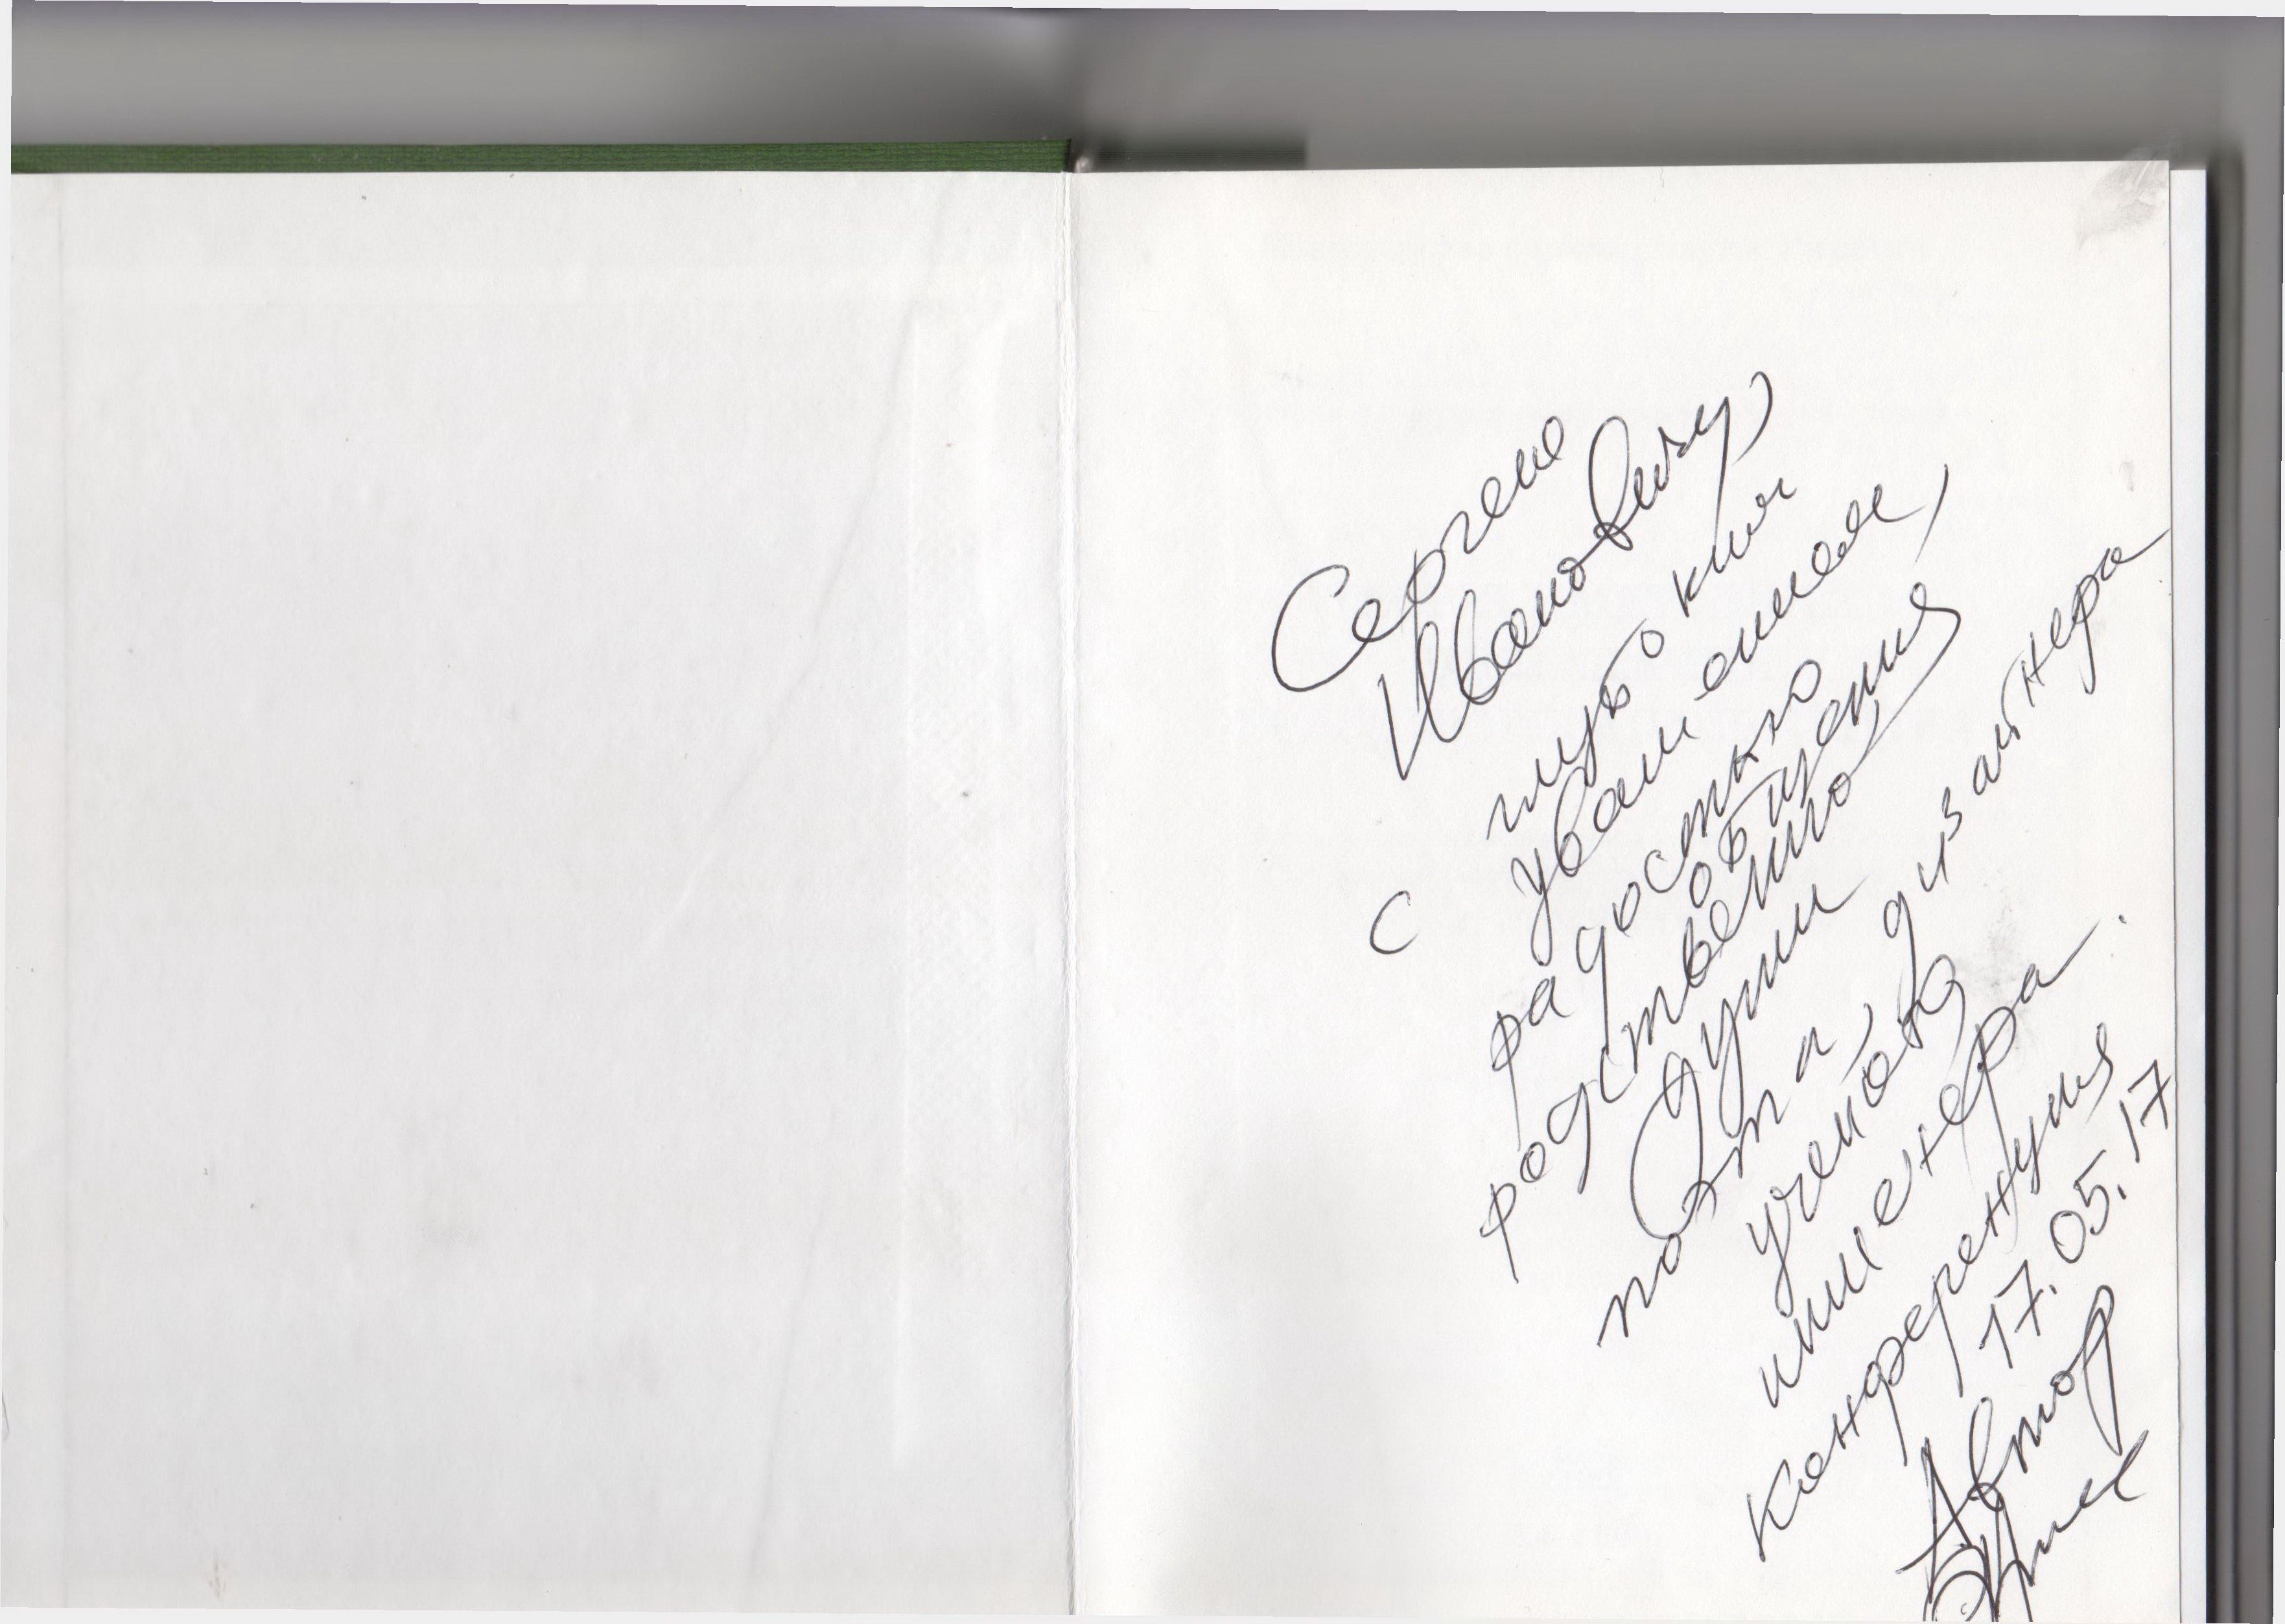 Сергею
Ивановичу
с глубоким
уважением,
радостью
общения
родственной
души
поэта, дизайнера
учёного,
инженера.
Конференция
17.05.17
Автор